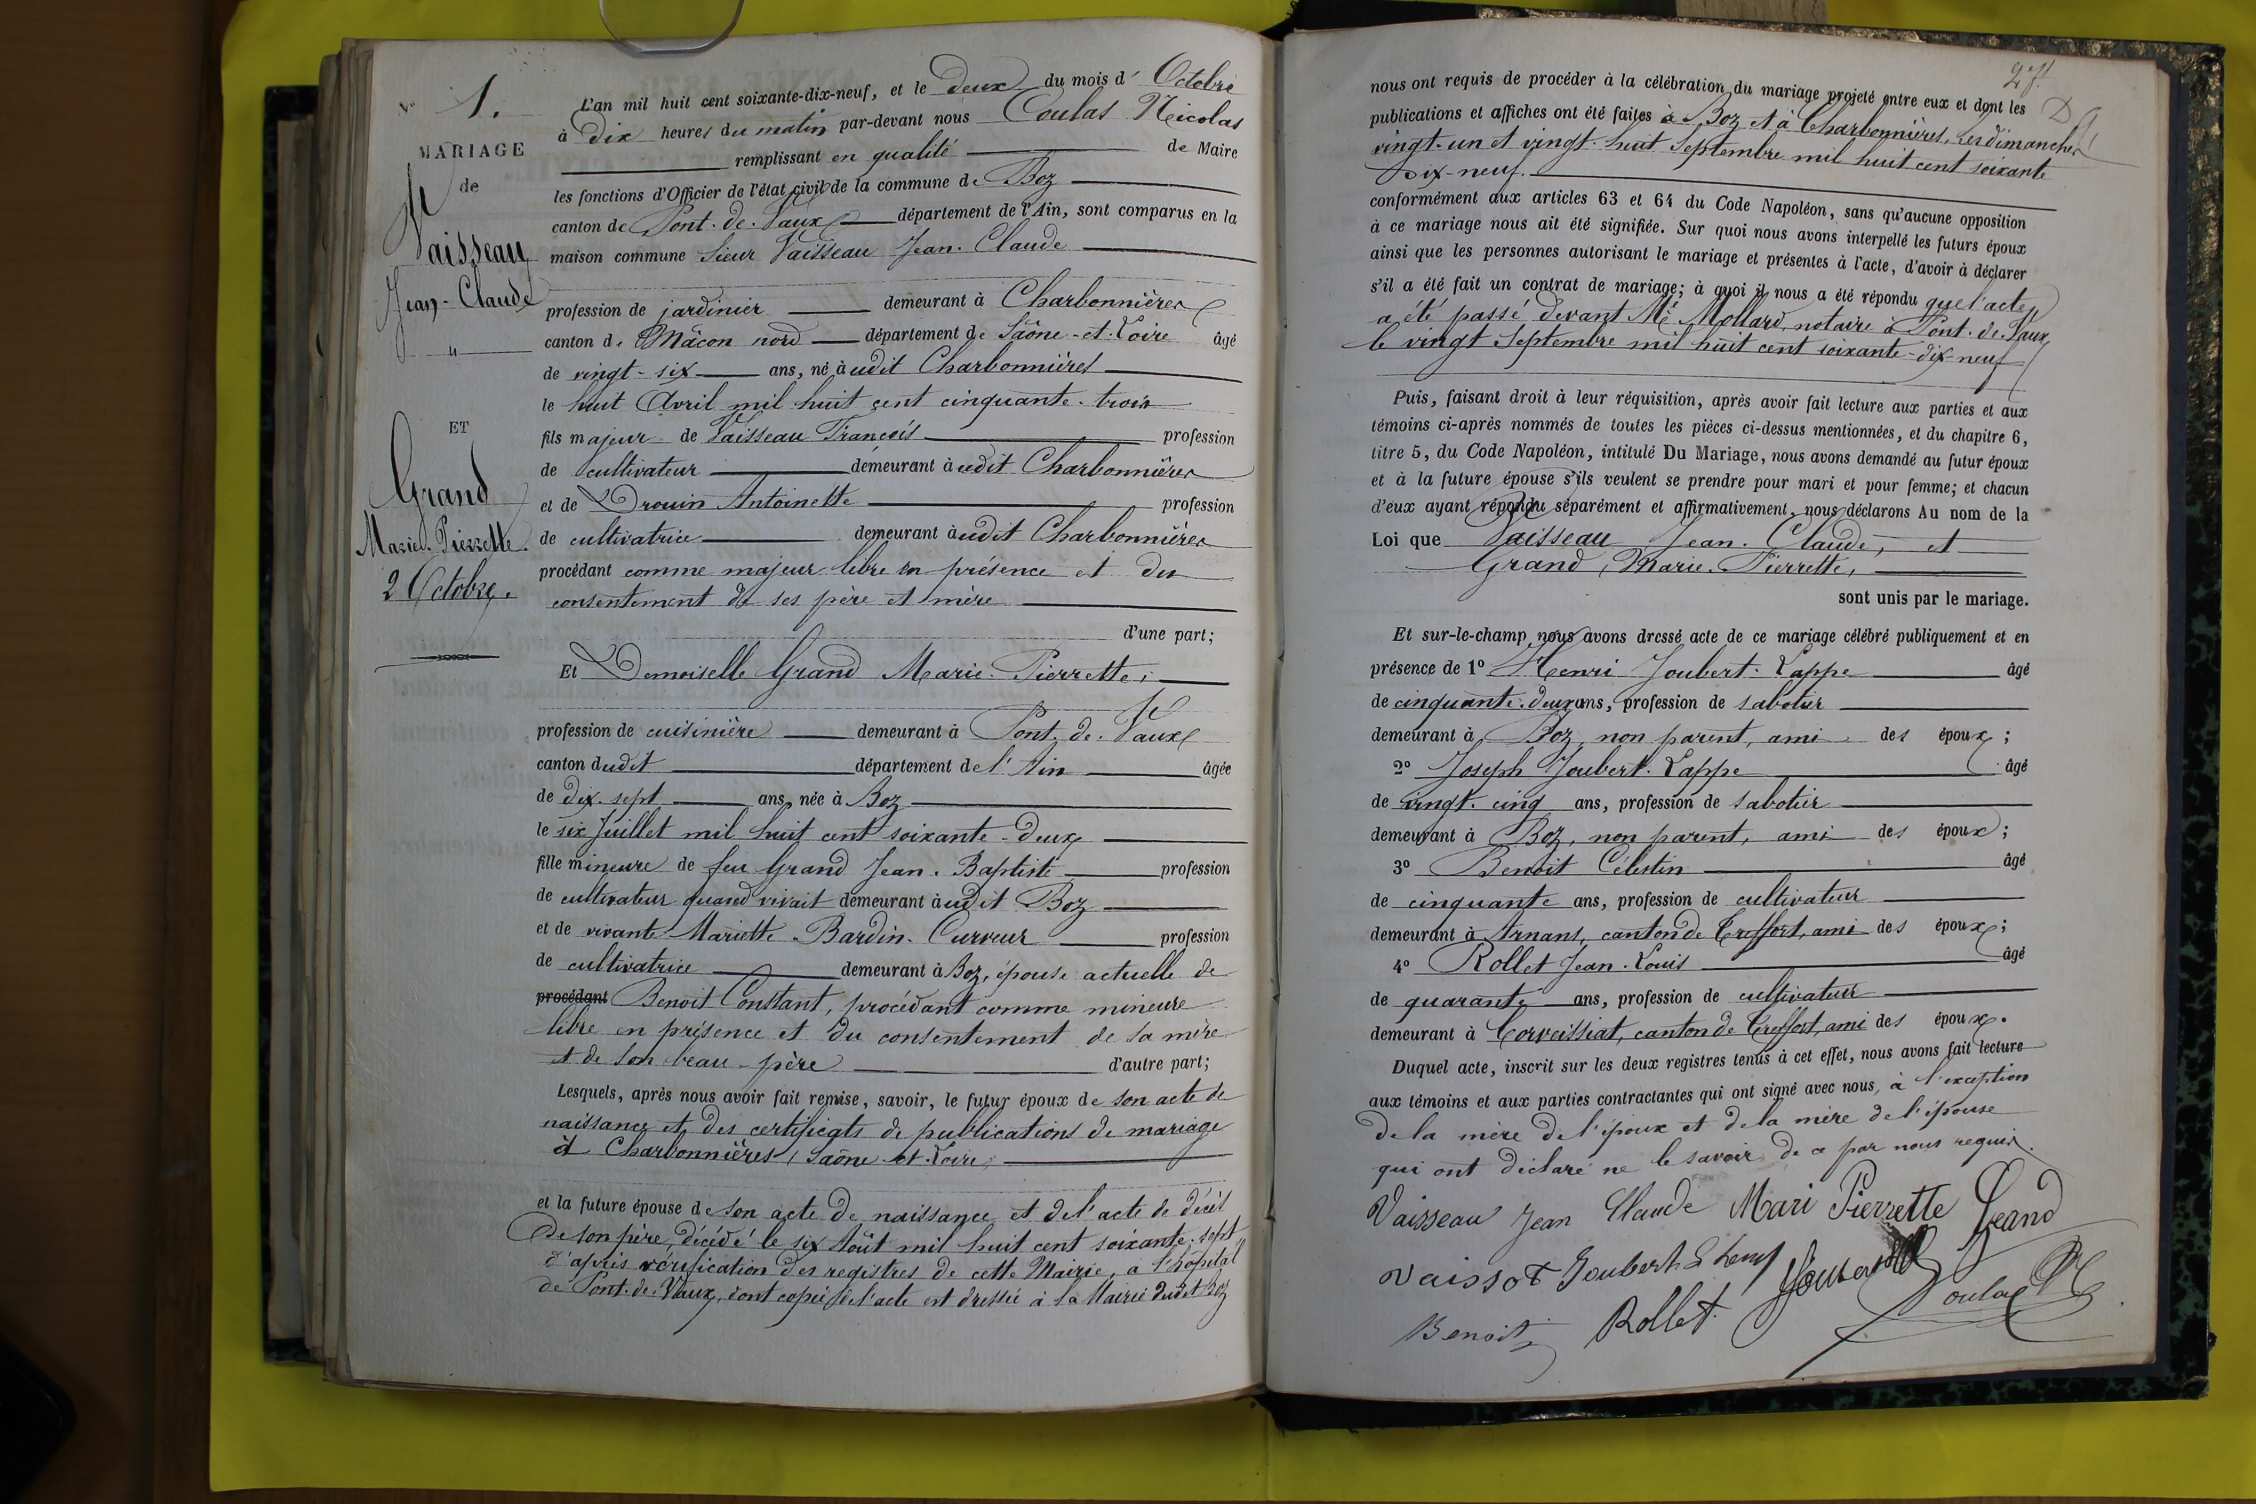 N° 1.
MARIAGE
de
Vaisseau
Jean-Claude
ET
Grand
Marie-Pierrette.
2 Octobre.
L'an mil huit cent soixante-dix-neuf, et le Deux du mois d'Octobre
à Dix heures du matin par-devant nous Coulas Nicolas
remplissant en qualité de Maire
les fonctions d'Officier de l'état civil de la commune de Boz
canton de Pont-de-Vaux département de l'Ain, sont comparus en la
maison commune Sieur Vaisseau Jean-Claude
profession de jardinier demeurant à Charbonnières
canton de Mâcon nord département de Saône-et-Loire âgé
de vingt-six ans, né audit Charbonnières
le huit Avril mil huit cent cinquante-trois
fils majeur de Vaisseau François profession
de cultivateur demeurant audit Charbonnières
et de Drouin Antoinette profession
de cultivatrice demeurant audit Charbonnières
procédant comme majeur libre en présence et du
consentement de ses père et mère
d'une part;
Et Demoiselle Grand Marie-Pierrette,
profession de cuisinière demeurant à Pont-de-Vaux
canton dudit département de l'Ain âgée
de dix-sept ans, née à Boz
le six Juillet mil huit cent soixante-deux
fille mineure de feu Grand Jean-Baptiste profession
de cultivateur quand vivait demeurant audit Boz
et de vivante Mariette Bardin-Curveur profession
de cultivatrice demeurant à Boz, épouse actuelle de
procédant Benoit Constant, procédant comme mineure
libre en présence et du consentement de sa mère
et de son beau-père d'autre part;
Lesquels, après nous avoir fait remise, savoir, le futur époux de son acte de
naissance et des certificats de publications de mariage
à Charbonnières, Saône-et-Loire,
et la future épouse de son acte de naissance et de l'acte de décès
de son père, décédé le six Août mil huit cent soixante-sept,
d'après vérification des registres de cette Mairie, a l'hôpital
de Pont-de-Vaux, dont copie de l'acte est dressée à la Mairie dudit Boz
nous ont requis de procéder à la célébration du mariage projeté entre eux et dont les
publications et affiches ont été faites à Boz et à Charbonnières, les dimanches
vingt-un et vingt-huit Septembre mil huit cent soixante
dix-neuf.
conformément aux articles 63 et 64 du Code Napoléon, sans qu'aucune opposition
à ce mariage nous ait été signifiée. Sur quoi nous avons interpellé les futurs époux
ainsi que les personnes autorisant le mariage et présentes à l'acte, d'avoir à déclarer
s'il a été fait un contrat de mariage; à quoi il nous a été répondu que l'acte
a été passé devant Me Mollard, notaire à Pont-de-Vaux
le vingt Septembre mil huit cent soixante-dix-neuf
Puis, faisant droit à leur réquisition, après avoir fait lecture aux parties et aux
témoins ci-après nommés de toutes les pièces ci-dessus mentionnées, et du chapitre 6,
titre 5, du Code Napoléon, intitulé Du Mariage, nous avons demandé au futur époux
et à la future épouse s'ils veulent se prendre pour mari et pour femme; et chacun
d'eux ayant répondu séparément et affirmativement, nous déclarons Au nom de la
Loi que Vaisseau Jean-Claude, et
Grand, Marie-Pierrette,
sont unis par le mariage.
Et sur-le-champ nous avons dressé acte de ce mariage célébré publiquement et en
présence de 1° Henri Joubert-Lappe âgé
de cinquante-deux ans, profession de sabotier
demeurant à Boz, non parent, ami des époux;
2° Joseph Joubert-Lappe âgé
de vingt-cinq ans, profession de sabotier
demeurant à Boz, non parent, ami des époux;
3° Benoit Célestin âgé
de cinquante ans, profession de cultivateur
demeurant à Arnans, canton de Treffort, ami des époux;
4° Rollet Jean-Louis âgé
de quarante ans, profession de cultivateur
demeurant à Corveissiat, canton de Treffort, ami des époux.
Duquel acte, inscrit sur les deux registres tenus à cet effet, nous avons fait lecture
aux témoins et aux parties contractantes qui ont signé avec nous, à l'exception
de la mère de l'époux et de la mère de l'épouse
qui ont déclaré ne le savoir de ce par nous requis.
Vaisseau Jean Claude Mari Pierrette Grand
Vaissot Joubert
Benoit Rollet Coulas